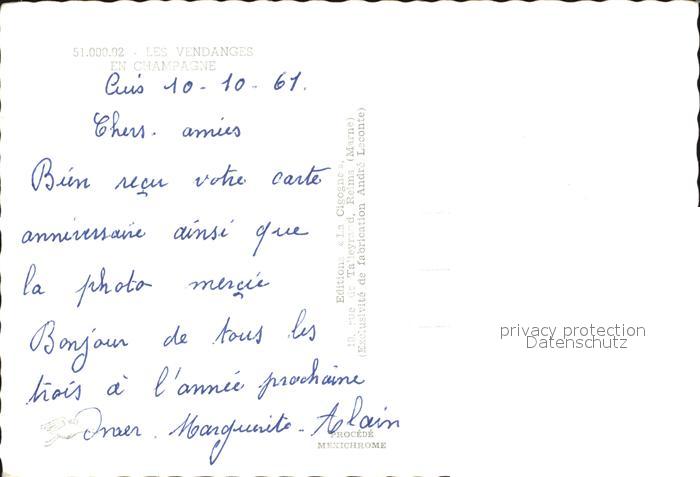 51.000.02 - LES VENDANGES
EN CHAMPAGNE
Cuis 10-10-61.
Chers. amies
Bien reçu votre carte
anniversaire ainsi que
la photo merçie
Bonjour de tous les
trois à l'année prochaine
Marguerite - Alain
Editions « La Cigogne »,
19, rue de Talleyrand, Reims (Marne)
(Exclusivité de fabrication André Leconte)
PROCÉDÉ
MEXICHROME
privacy protection
Datenschutz